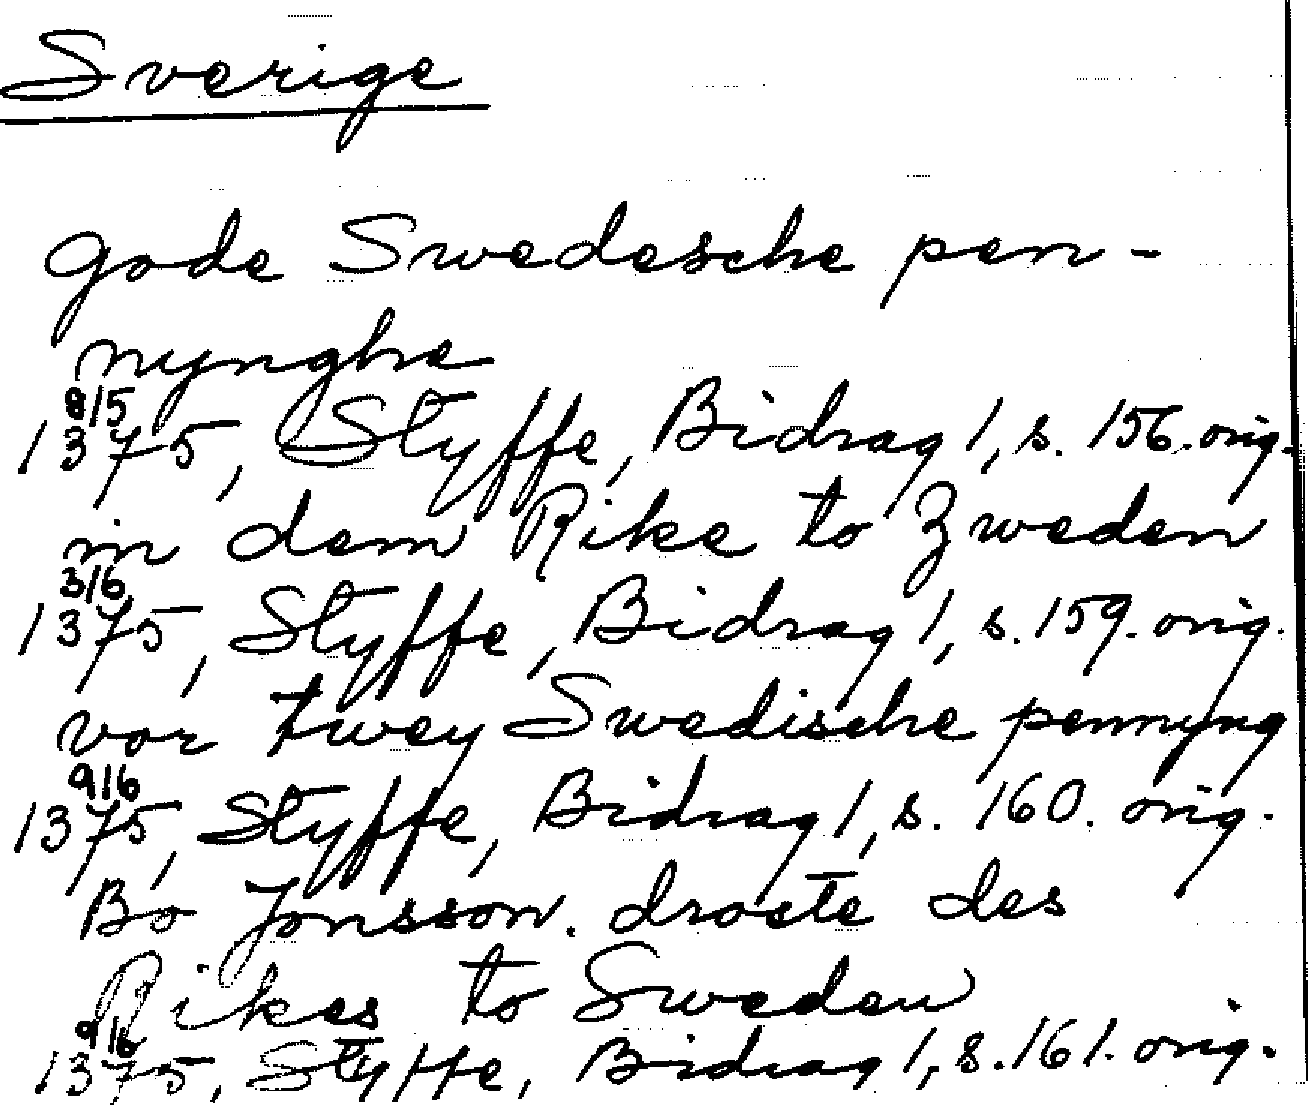 Sverige
gode Swedesche pen-
nynghe
8/5
1375, Styffe, Bidrag 1, s. 156. orig.
in dem Rike to Zweden
3/6
1375, Styffe, Bidrag 1, s. 159. orig.
vor twey Swedische pennyng
9/6
1375, Styffe, Bidrag 1, s. 160. orig.
Bo Jonsson. droste des
Rikes to Sweden
9/6
1375, Styffe, Bidrag 1, s. 161. orig.